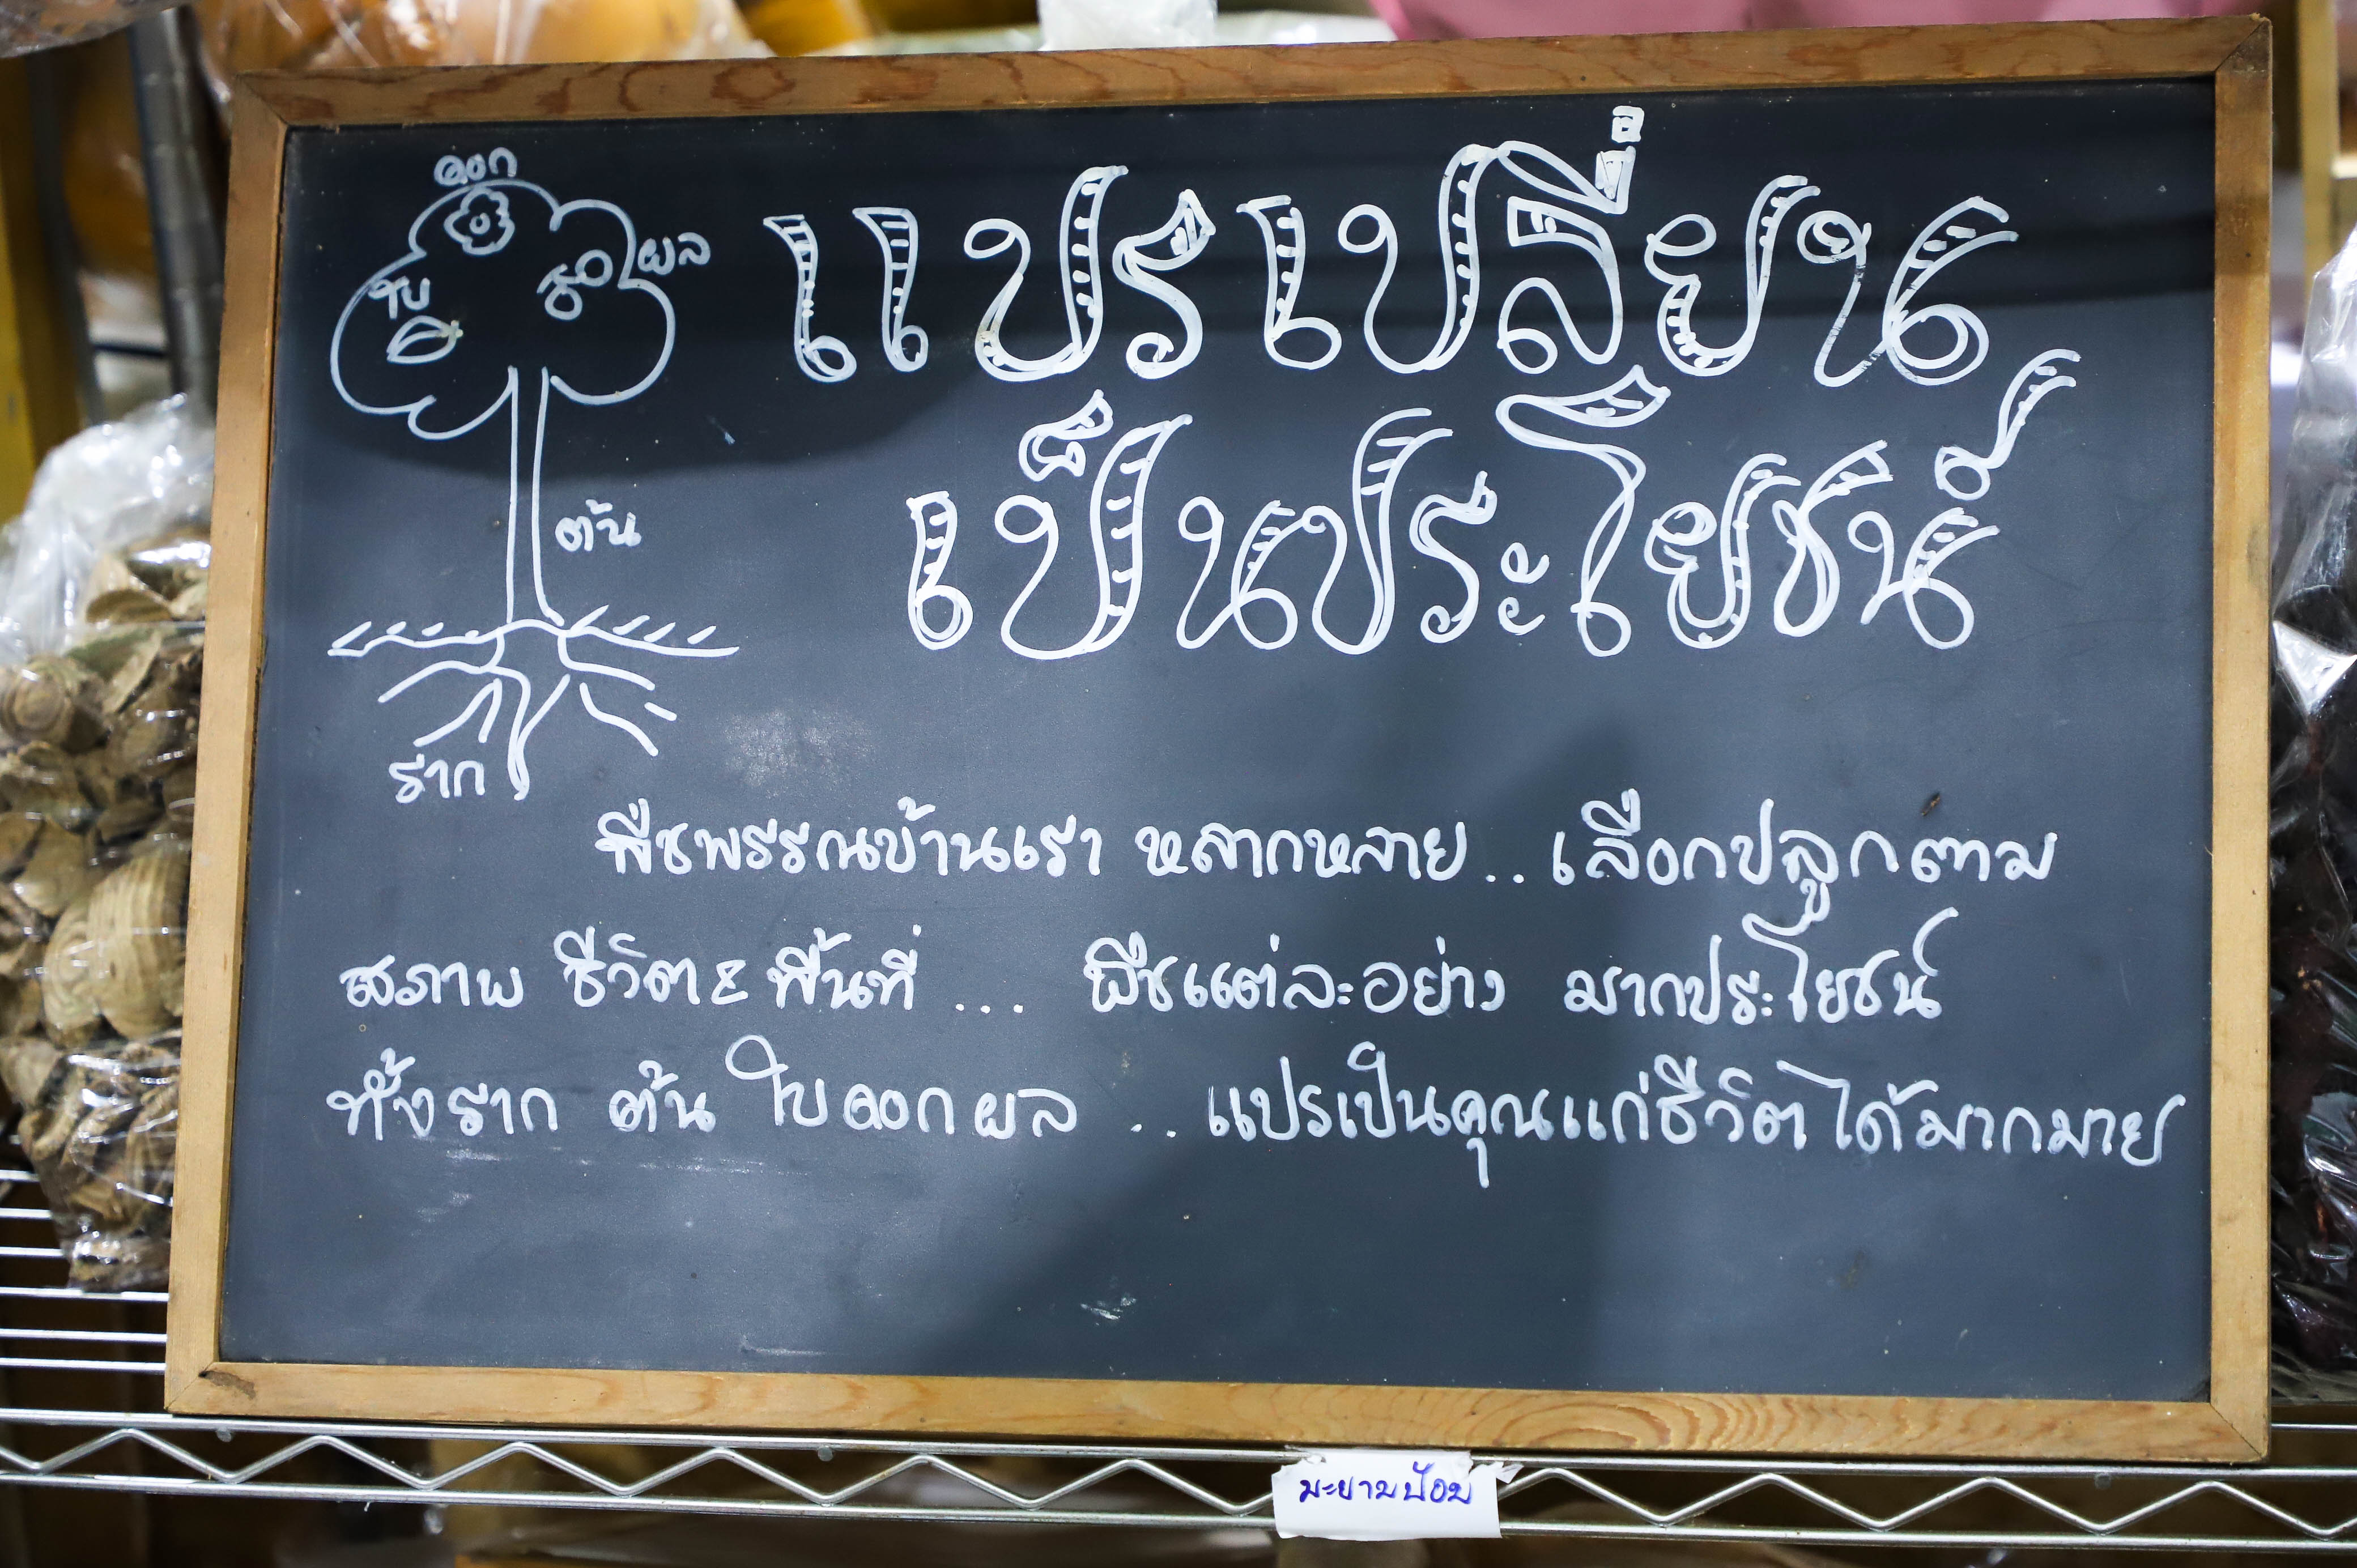 ดอก
ผล
ใบ
ต้น
ราก
แปรเปลี่ยน
เป็นประโยชน์
พืชพรรณบ้านเรา หลากหลาย .. เลือกปลูกตาม
สภาพ ชีวิต & พื้นที่ ... พืชแต่ละอย่าง มากประโยชน์
ทั้งราก ต้น ใบ ดอก ผล .. แปรเป็นคุณแก่ชีวิตได้มากมาย
มะขามป้อม